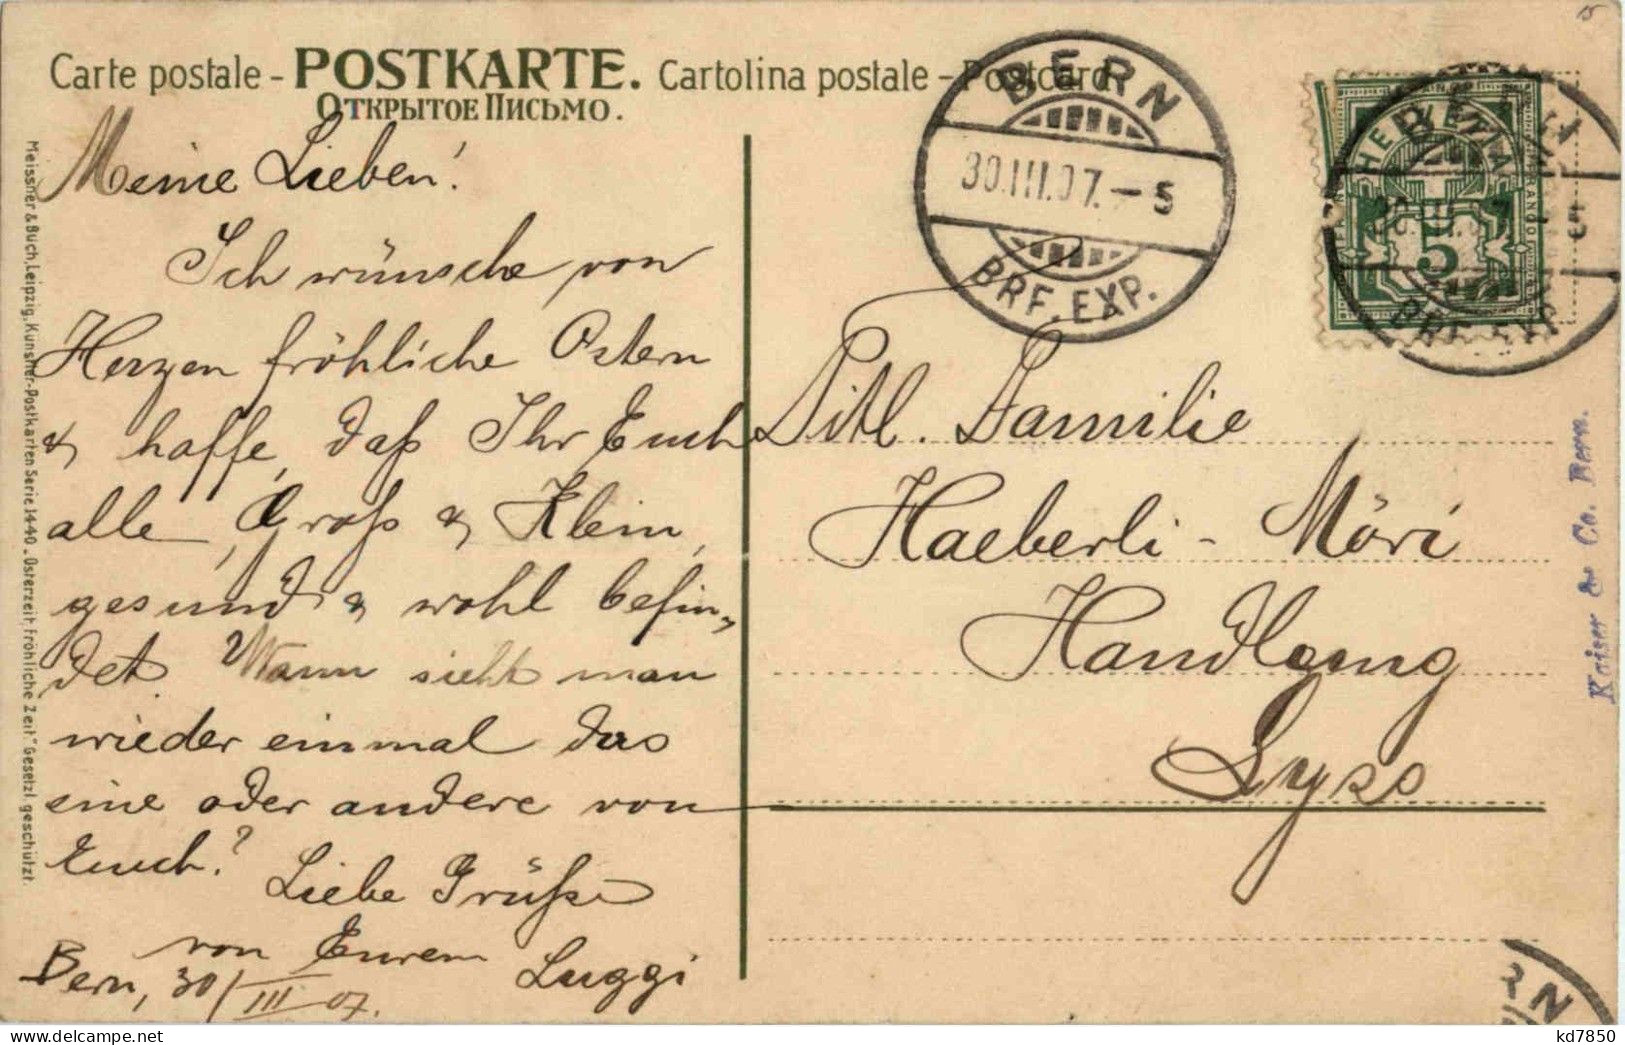 Carte postale - POSTKARTE. Cartolina postale - Postcard
ОТКРЫТОЕ ПИСЬМО.
Meissner & Buch, Leipzig, Künstler-Postkarten Serie 1440. Osterzeit, fröhliche Zeit" Gesetzl. geschützt.
Meine Lieben!
Ich wünsche von
Herzen fröhliche Ostern
& hoffe, daß Ihr Euch
alle, Groß & Klein,
gesund & wohl befin-
det. Wann sieht man
wieder einmal das
eine oder andere von
Euch?
Liebe Grüße
von Eurem Luggi
Bern, 30/III 07.
BERN
30.III.07.-5
BRF. EXP.
HELVETIA
5
BERN
30.III.07.-5
BRF. EXP.
Titl. Familie
Haeberli - Möri
Handlung
Lyss
Kaiser & Co. Bern.
RN
15
kd7850